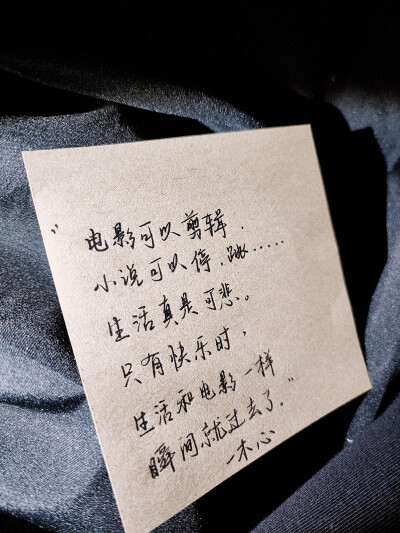 "电影可以剪辑，
小说可以停、跳……
生活真是可悲。
只有快乐时，
生活和电影一样
瞬间就过去了。"
—木心